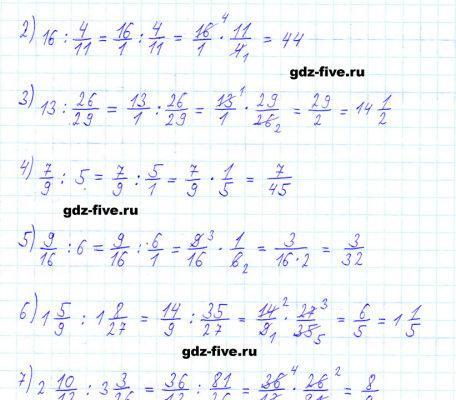 2) 16 : 4/11 = 16/1 : 4/11 = 16⁴/1 · 11/4₁ = 44
gdz-five.ru
3) 13 : 26/29 = 13/1 : 26/29 = 13¹/1 · 29/26₂ = 29/2 = 14 1/2
4) 7/9 : 5 = 7/9 : 5/1 = 7/9 · 1/5 = 7/45
gdz-five.ru
5) 9/16 : 6 = 9/16 : 6/1 = 9³/16 · 1/6₂ = 3/16·2 = 3/32
6) 1 5/9 : 1 8/27 = 14/9 : 35/27 = 14²/9₁ · 27³/35₅ = 6/5 = 1 1/5
gdz-five.ru
7) 2 10/13 : 3 3/26 = 36/13 : 81/26 = 36⁴/13 · 26²/81 = 8